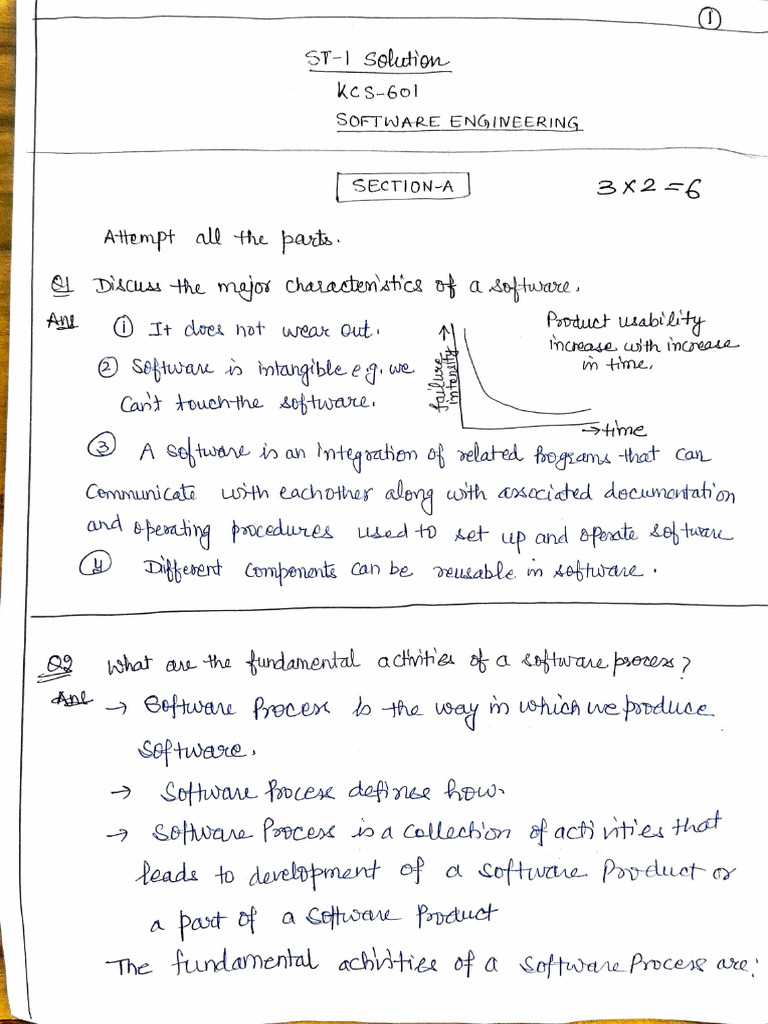 1
ST-1 Solution
KCS-601
SOFTWARE ENGINEERING
SECTION-A
3 × 2 = 6
Attempt all the parts.
Q1 Discuss the major characteristics of a software.
Ans
① It does not wear out.
② Software is intangible e.g. we
can't touch the software.
failure
intensity
→time
Product usability
increase with increase
in time.
③ A software is an integration of related Programs that can
communicate with eachother along with associated documentation
and operating procedures used to set up and operate software
④ Different components can be reusable in software.
Q2 What are the fundamental activities of a software process?
Ans → Software Process is the way in which we produce
software.
→ Software Process defines how.
→ Software Process is a collection of activities that
leads to development of a software Product or
a part of a software Product
The fundamental activities of a software Process are: